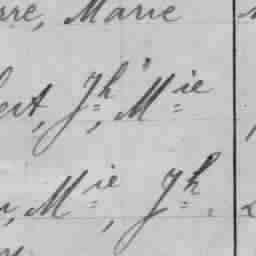 rre, Marie
ert, Jh, Mie
, Mie, Jh.